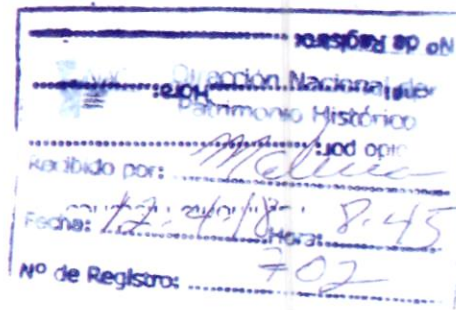 Nº de Registro:
Dirección Nacional de
Hora:
Patrimonio Histórico
ido por:
Recibido por: Melina
Fecha: 12-4-18 Hora: 8:45
Nº de Registro: 702